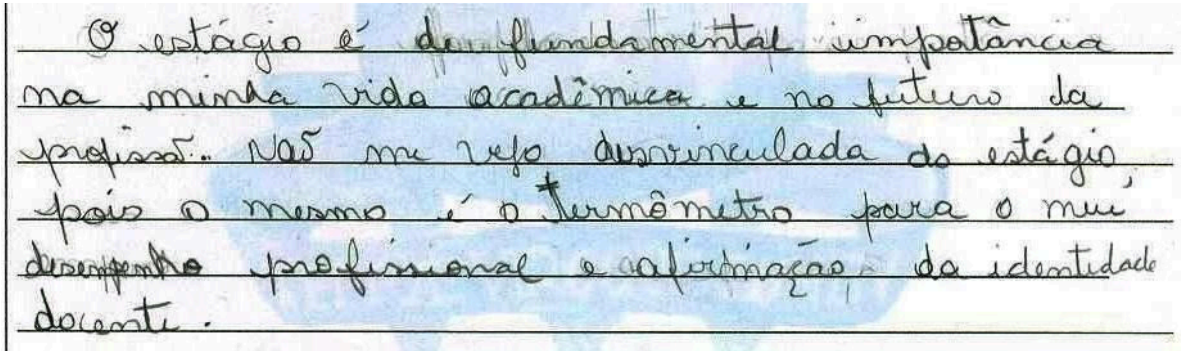 O estágio é de fundamental impotância
na minha vida acadêmica e no futuro da
profissão. Não me vejo desvinculada do estágio,
pois o mesmo é o termômetro para o meu
desempenho profissional e afirmação, da identidade
docente.